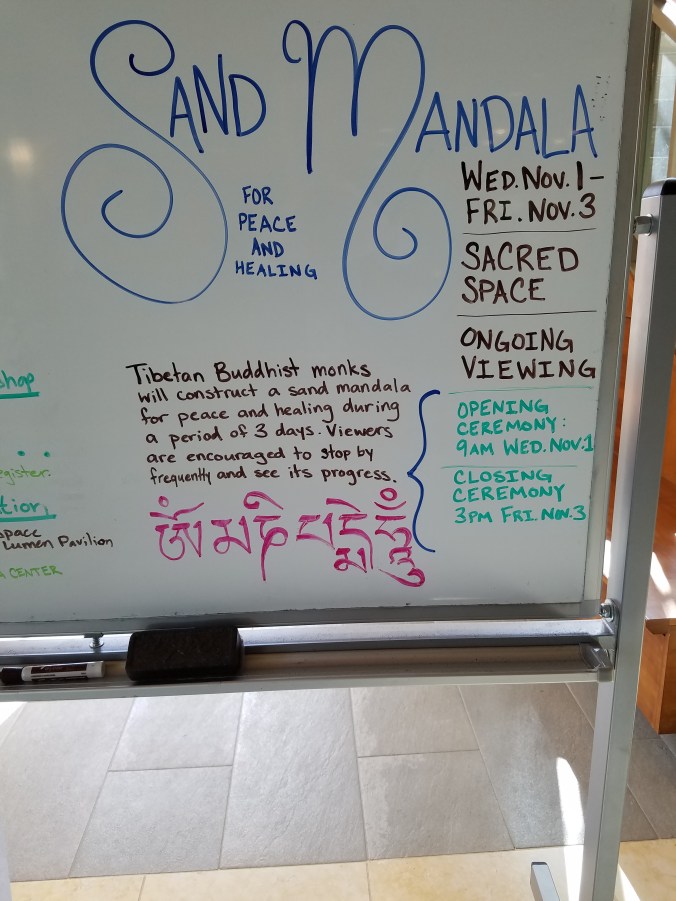 SAND MANDALA
FOR
PEACE
AND
HEALING
WED. NOV. 1 -
FRI. NOV. 3
SACRED
SPACE
ONGOING
VIEWING
Tibetan Buddhist monks
will construct a sand mandala
for peace and healing during
a period of 3 days. Viewers
are encouraged to stop by
frequently and see its progress.
OPENING
CEREMONY:
9AM WED. NOV. 1
CLOSING
CEREMONY
3PM FRI. NOV. 3
ཨོཾ མ ཎི པདྨེ ཧཱུྃ
shop
egister.
space
Lumen Pavilion
CENTER